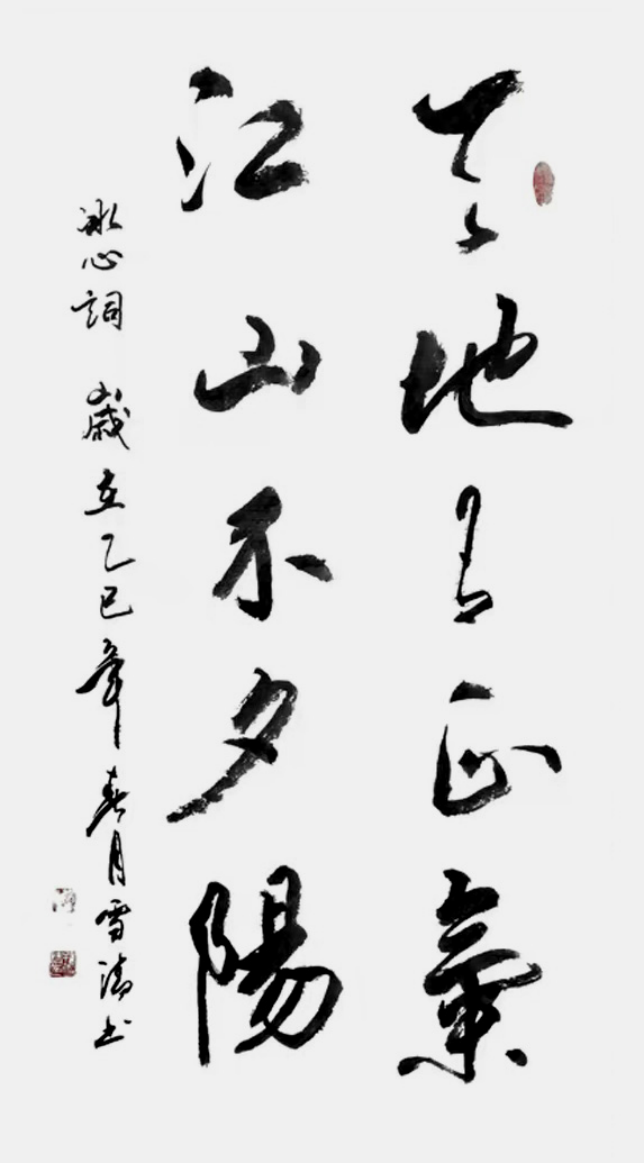 天地有正氣
江山不夕陽
冰心詞 歲在乙巳年春月雪清书